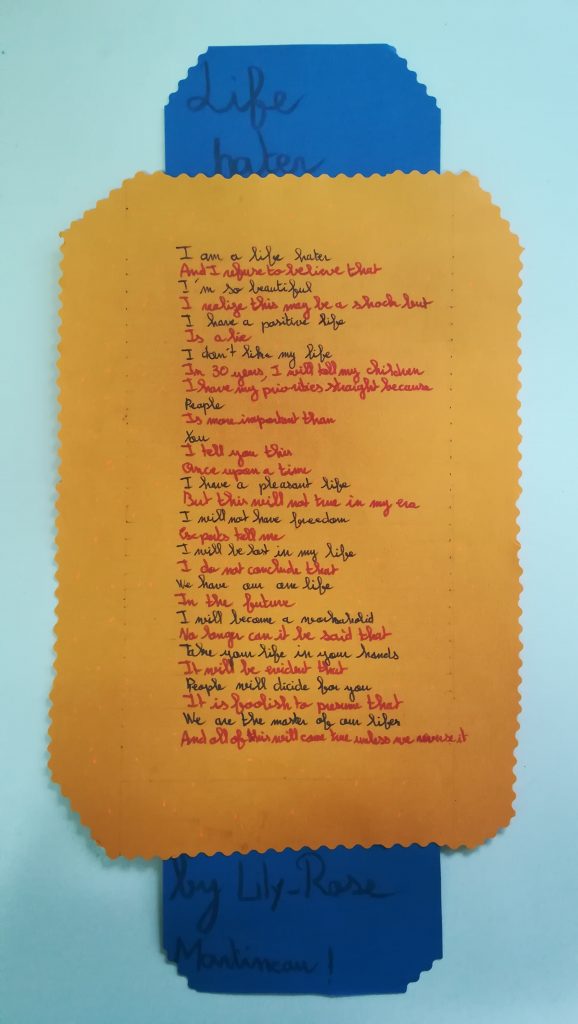 Life
hater
I am a life hater
And I refuse to believe that
I'm so beautiful
I realize this may be a shock but
I have a positive life
Is a lie
I don't like my life
In 30 years, I will tell my children
I have my priorities straight because
People
Is more important than
You
I tell you this
Once upon a time
I have a pleasant life
But this will not true in my era
I will not have freedom
Experts tell me
I will be lost in my life
I do not conclude that
We have our one life
In the future
I will become a workaholid
No longer can it be said that
Take your life in your hands
It will be evident that
People will decide for you
It is foolish to presume that
We are the master of our lifes
And all of this will come true unless we reverse it
by Lily-Rose
Martineau !